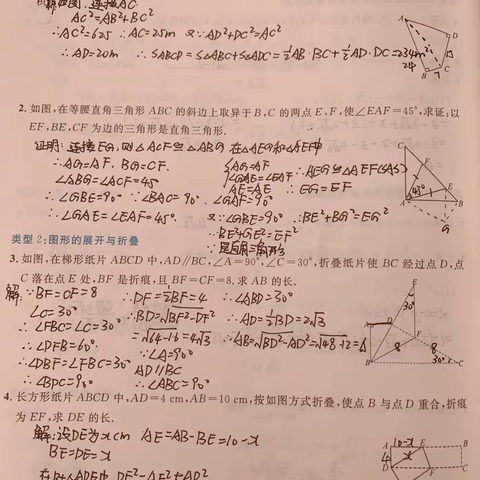 解如图,连接AC.
AC²=AB²+BC²
∴AC²=625 ∴AC=25m 又∵AD²+DC²=AC²
∴AD=20m ∴SABCD=S△ABC+S△ADC=½AB·BC+½AD·DC=234m²
2. 如图,在等腰直角三角形 ABC 的斜边上取异于 B,C 的两点 E,F,使∠EAF=45°,求证:以
EF,BE,CF 为边的三角形是直角三角形.
证明:连接EG,则△ACF≌△ABG 在△AEG和△AEF中
∴AG=AF. BG=CF. {AG=AF ∴AEG≌△AEF(SAS)
∠ABG=∠ACF=45° ∠GAE=∠EAF
∴∠GBE=90° ∵∠BAC=90° ∠GAF=90° AE=AE ∴EG=EF
∴∠GAE=∠EAF=45° 又∵∠GBE=90° ∴BE²+BG²=EG²
类型 2:图形的展开与折叠
3. 如图,在梯形纸片 ABCD 中,AD∥BC,∠A=90°,∠C=30°,折叠纸片使 BC 经过点 D,点
C 落在点 E 处,BF 是折痕,且 BF=CF=8.求 AB 的长.
解:∵BF=CF=8 ∴DF=½BF=4 ∴∠ABD=30°
∠C=30° ∴BD=√BF²-DF² ∴AD=½BD=2√3
∴∠FBC=∠C=30° =√64-16=4√3 ∴AB=√BD²-AD²=√48-12=6
∴∠DFB=60° ∵∠A=90°
∴∠DBF=∠FBC=30° AD∥BC
∴∠BDC=90° ∴∠ABC=90°
4. 长方形纸片 ABCD 中,AD=4 cm,AB=10 cm,按如图方式折叠,使点 B 与点 D 重合,折痕
为 EF,求 DE 的长.
解:设DE为xcm AE=AB-BE=10-x
BE=DE=x
在Rt△ADE中 DE²=AE²+AD²